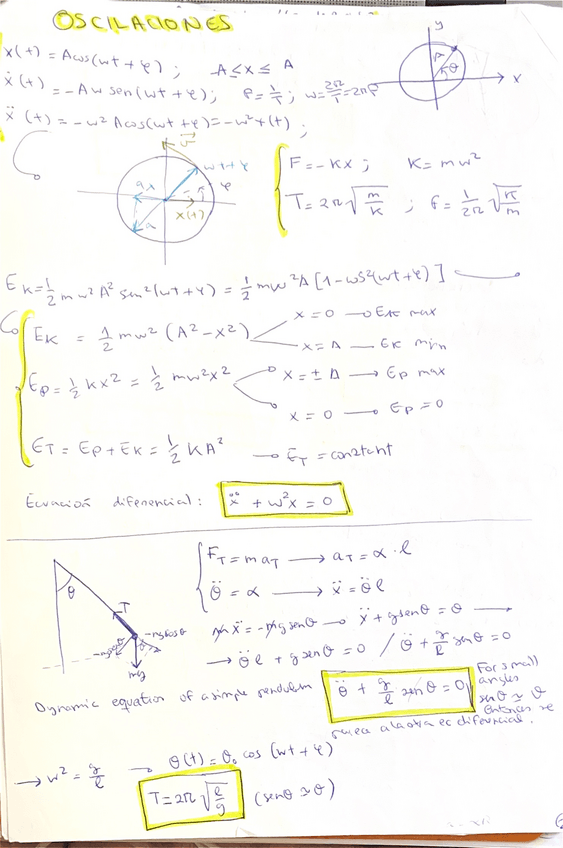 OSCILACIONES
x(t) = A cos(wt + φ) ; -A ≤ x ≤ A
ẋ(t) = -Aw sen(wt + φ) ; f = 1/T ; w = 2π/T = 2πf
ẍ(t) = -w² A cos(wt + φ) = -w² x(t) ;
y
A
θ
x
v
wt + φ
φ
ax
a
x(t)
F = -Kx ; K = mw²
T = 2π √(m/K) ; f = 1/2π √(K/m)
EK = 1/2 m w² A² sen²(wt + φ) = 1/2 mw² A [1 - cos²(wt + φ)]
EK = 1/2 mw² (A² - x²)
x = 0 → EK max
x = A — EK min
Ep = 1/2 kx² = 1/2 mw²x²
x = ± A → Ep max
x = 0 — Ep = 0
ET = Ep + EK = 1/2 KA² → ET = constant
Ecuación diferencial: ẍ + w²x = 0
θ
T
-mgcosθ
mg
FT = m aT → aT = α · l
θ̈ = α → ẍ = θ̈l
mẍ = -mg senθ → ẍ + g senθ = 0 →
→ θ̈ l + g senθ = 0 / θ̈ + g/l senθ = 0
Dynamic equation of a simple pendulum θ̈ + g/l senθ = 0
For small
angles
senθ ≃ θ
Entonces se
a la otra ec diferencial.
→ w² = g/l → θ(t) = θ₀ cos (wt + φ)
T = 2π √(l/g) (senθ ≃ θ)